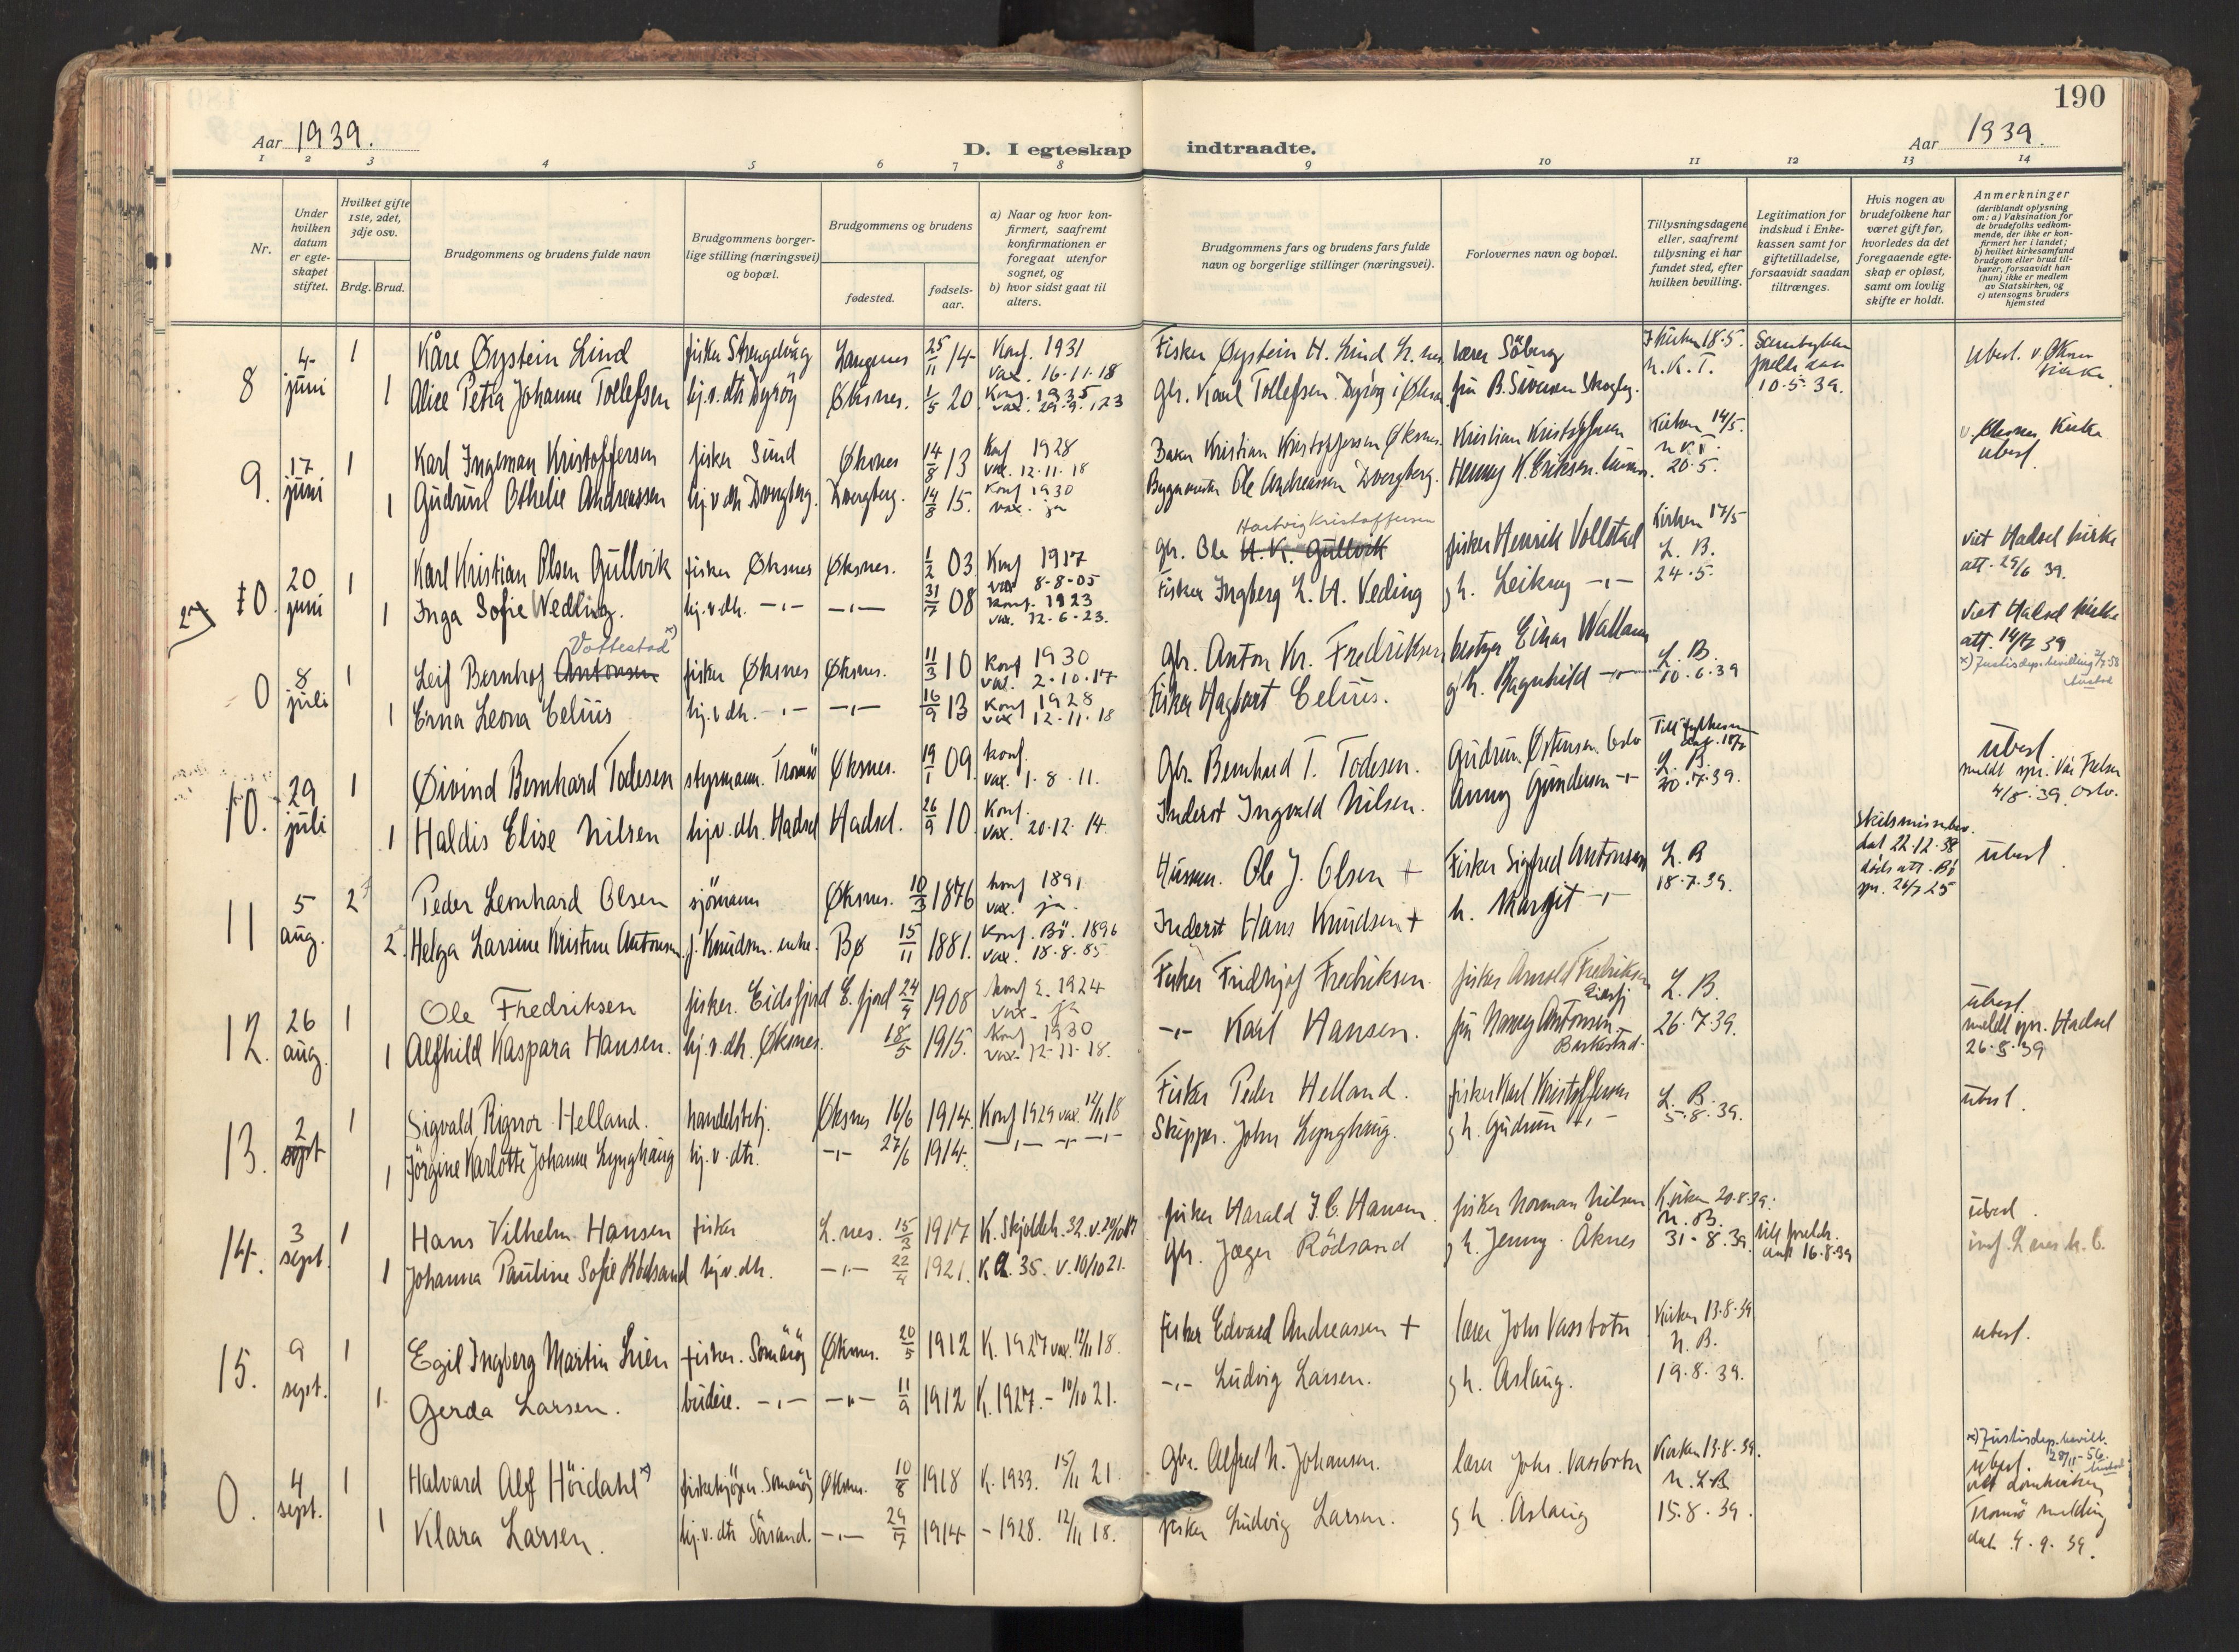 190
Aar 1939.
D. I egteskap indtraadte.
Aar 1939.
1 2 3 4 5 6 7 8 9 10 11 12 13 14
Nr.
Under hvilken datum er egteskapet stiftet.
Hvilket gifte 1ste, 2det, 3dje osv.
Brdg. Brud.
Brudgommens og brudens fulde navn
Brudgommens borgerlige stilling (næringsvei) og bopæl.
Brudgommens og brudens
fødested.
fødselsaar.
a) Naar og hvor konfirmert, saafremt konfirmationen er foregaat utenfor sognet, og
b) hvor sidst gaat til alters.
Brudgommens fars og brudens fars fulde navn og borgerlige stillinger (næringsvei).
Forlovernes navn og bopæl.
Tillysningsdagene eller, saafremt tillysning ei har fundet sted, efter hvilken bevilling.
Legitimation for indskud i Enkekassen samt for giftetilladelse, forsaavidt saadan tiltrænges.
Hvis nogen av brudefolkene har været gift før, hvorledes da det foregaaende egteskap er opløst, samt om lovlig skifte er holdt.
Anmerkninger
(deriblandt oplysning om: a) Vaksination for de brudefolks vedkommende, der ikke er konfirmert her i landet;
b) hvilket kirkesamfund brudgom eller brud tilhører, forsaavidt han (hun) ikke er medlem av Statskirken, og
c) utensogns bruders hjemsted
8 4 juni 1 Kåre Øystein Lind fisker Strengelvåg Langenes 25/11 14 Konf. 1931 vax. 16-11-18 Fisker Øystein H. Lind L. nes lærer Söberg 18.5.
1 Alice Petra Johanne Tollefsen hj.v.dtr Dyröy Øksnes. 1/5 20 Konf. 1935 vax. 29.9.23 gbr. Karl Tollefsen Dyröy i Øksn. fru B. Sivertsen 10.5.39.
9. 17 juni 1 Karl Ingeman Kristoffersen fisker Sund Øksnes 14/8 13 Konf 1928 vax. 12.11.18 Baker Kristian Kristoffersen Øksnes. Kristian Kristoffersen Kirken 14/5.
1 Gudrun Othelie Andreassen hj.v.dtr Dvergberg. Dvergberg. 14/8 15. Konf 1930 vax. ja Byggmester Ole Andreassen Dvergberg. Henny K. Eriksen 20.5. ubesl.
10. 20 juni 1 Karl Kristian Olsen Gullvik fisker Øksnes Øksnes. 1/2 03 Konf 1917 vax 8-8-05 gbr. Ole H. K. Gullvik Hartvig Kristoffersen fisker Henrik Vollstad Kirken 17/5 L. B. viet Hadsel kirke
1 Inga Sofie Wedling. hj.v.dtr. -"- -"- 31/7 08 Konf. 1923 vax. 12-6-23. Fisker Ingberg L. H. Veding g.h. Leikny -"- 24.5. att. 29/6 39.
0 8 juli 1 Leif Bernhof Antonsen Vottestad x) fisker Øksnes Øksnes. 11/3 10 Konf 1930 vax. 2.10.17 gbr. Anton Kr. Fredriksen bestyrer Einar L. B. viet Hadsel kirke
1 Erna Leona Celius hj.v.dtr. -"- -"- 16/9 13 Konf 1928 vax 12.11.18 Fisker Hagbart Celius. g.h. Ragnhild -"- 10.6.39 x) Justisdep. bevilling
10. 29 juli 1 Øivind Bernhard Todesen styrmann. Tromsö Øksnes. 19/1 09. Konf. vax. 1.8.11. Gbr. Bernhard T. Todesen. Gudrun Østensen Oslo L. B. ubesl
1 Haldis Elise Nilsen hj.v.dtr. Hadsel Hadsel. 26/9 10. Konf. vax. 20.12.14. Inderst Ingvald Nilsen. Anny Gundersen -"- 20.7.39. 4/8.39. Oslo.
11 5 aug. 2 Peder Leonhard Olsen sjömann Øksnes. 10/3 1876 Konf 1891 vax. ja. Husmn. Ole J. Olsen + Fisker Sigfred Antonsen L. B 18.7.39. dat 22.12.38 ubesl.
2 Helga Larsine Kristine Antonsen f. Knudsen. enke. Bø 15/11 1881. Konf. Bö. 1896 vax. 18.8.85. Inderst Hans Knudsen + h. Margit -"- dödsatt. Bö
12. 26 aug. 1 Ole Fredriksen fisker. Eidsfjord E.fjord 24/4 1908 konf E. 1924 vax. ja Fisker Fridtjof Fredriksen. fisker Arnold Fredriksen Eidsfj L. B. ubesl
1 Alfhild Kaspara Hansen. hj.v.dtr. Øksnes. 18/5 1915. Konf 1930 vax. 12-11-18. -"- Karl Hansen. fru Antonsen 26.7.39. meldt spr. Hadsel 26.8.39
13. 2 sept 1 Sigvald Rignor Helland. handelsbetj. Øksnes 16/6 1914. Konf 1929 vax. 12/11 18 Fisker Peder Helland. fisker Karl Kristoffersen L. B. ubesl.
1 Jörgine Karlotte Johanne Lynghaug hj.v.dtr. -"- 27/6 1914. -"- -"- -"- Skipper. John Lynghaug. g h. Gudrun -"- 5.8.39.
14. 3 sept. 1 Hans Vilhelm Hansen fisker L.nes. 15/3 1917 K. Skjoldeh. 32. fisker Harald J. C. Hansen. fisker Norman Nilsen Kirken 20.8.39. ubesl.
1 Johanna Pauline Sofie Rödsand hj.v.dtr. -"- 22/4 1921. K L. 35. v. 10/10 21. gbr. Jæger Rödsand g h. Jenny Åknes 31-8.39. 16.8.39
15. 9 sept. 1 Egil Ingberg Martin Lien fisker. Somaröy Øksnes. 20/5 1912 K. 1927 vax. 12/11 18. fisker Edvard Andreassen + lærer Johs Vassbotn Kirken 13.8.39 N. B. ubesl.
1. Gerda Larsen. budeie. -"- -"- 11/9 1912 K. 1927. - 10/10 21. -"- Ludvig Larsen. g h. Aslaug. 19.8.39.
0. 4 sept. 1 Halvard Alf Höidahl x) fiskekjöper. Somaröy Øksnes. 10/8 1918 K. 1933. 15/11 21. Gbr. Alfred N. Johansen. lærer Johs. Vassbotn Kirken 13.8.39. x) Justisdep. bevill. ubesl.
1 Klara Larsen. hj.v.dtr Sörsand. -"- 29/7 1914 - 1928. 12/11 18. fisker Ludvig Larsen. g h. Aslaug 15.8.39. att domkirken Tromsö melding dat. 4.9.39.